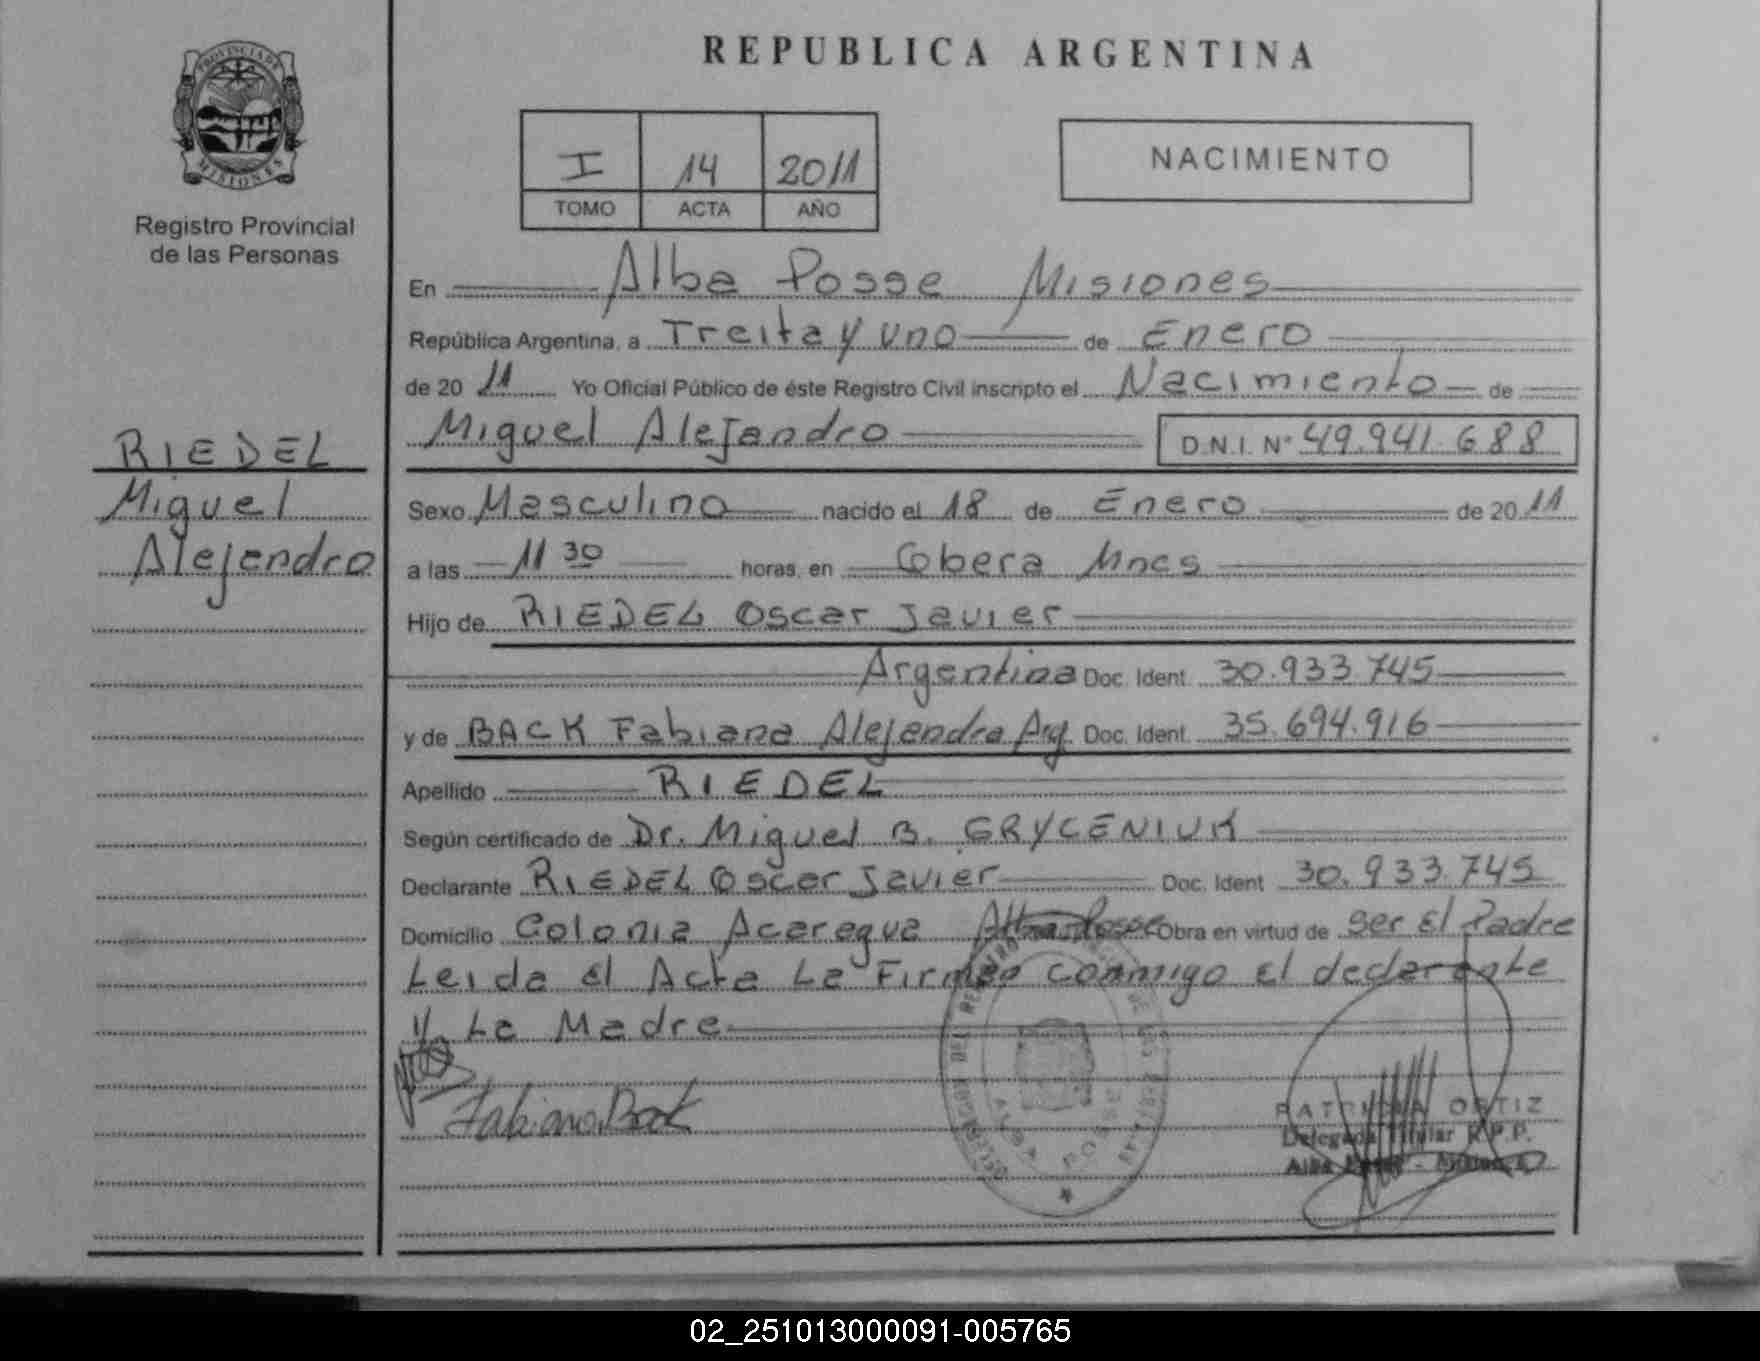 REPUBLICA ARGENTINA
PROVINCIA DE
MISIONES
Registro Provincial
de las Personas
I 14 2011
TOMO ACTA AÑO
NACIMIENTO
En Alba Posse Misiones
República Argentina, a Treita y uno de Enero
de 20 11 Yo Oficial Público de éste Registro Civil inscripto el Nacimiento de
Miguel Alejandro D.N.I. Nº 49.941.688
RIEDEL
Miguel
Alejandro
Sexo Masculino nacido el 18 de Enero de 20 11
a las 11 30 horas, en Obera Mnes
Hijo de RIEDEL Oscar Javier
Argentina Doc. Ident. 30.933.745
y de BACK Fabiana Alejandra Arg. Doc. Ident. 35.694.916
Apellido RIEDEL
Según certificado de Dr. Miguel B. GRYCENIUK
Declarante RIEDEL Oscar Javier Doc. Ident 30.933.745
Domicilio Colonia Acaragua Alba Posse Obra en virtud de Ser El Padre
Leida el Acta La Firman conmigo El declarante
y La Madre
Fabiana Back
ALBA POSSE
PATRICIA ORTIZ
Delegada Titular R.P.P.
Alba Posse - Misiones
02_251013000091-005765